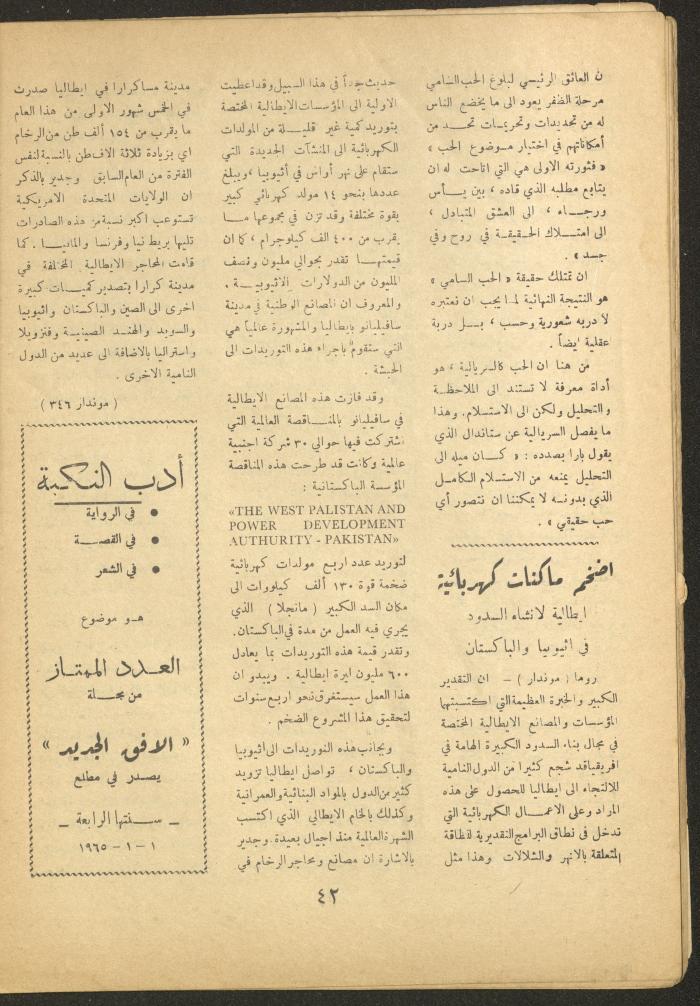 ن العائق الرئيسي لبلوغ الحب السامي
مرحلة الظفر يعود الى ما يخضع الناس
له من تحديدات وتحريمات تحد من
أمكاناتهم في اختيار موضوع الحب »
« فثورته الاولى هي التي اتاحت له ان
يتابع مطلبه الذي قاده ، بين يأس
ورجاء ، الى العشق المتبادل ،
الى امتلاك الحقيقة في روح وفي
جسد » .
ان تمتلك حقيقة « الحب السامي »
هو النتيجة النهائية لما يجب ان نعتبره
لا دربه شعورية وحسب ، بل دربة
عقلية ايضاً .
من هنا ان الحب كالسريالية ، هو
أداة معرفة لا تستند الى الملاحظة
والتحليل ولكن الى الاستسلام . وهذا
ما يفصل السريالية عن ستاندال الذي
يقول بارا بصدده : « كان ميله الى
التحليل يمنعه من الاستسلام الكامل
الذي بدونه لا يمكننا ان نتصور أي
حب حقيقي » .
اضخم ماكنات كهربائية
ايطالية لانشاء السدود
في اثيوبيا والباكستان
روما ( موندار ) – ان التقدير
الكبير والخبرة العظيمة التي اكتسبتها
المؤسسات والمصانع الايطالية المختصة
في مجال بناء السدود الكبيرة الهامة في
افريقيا قد شجع كثيرا من الدول النامية
للالتجاء الى ايطاليا للحصول على هذه
المراد وعلى الاعمال الكهربائية التي
تدخل في نطاق البرامج التقديرية للطاقة
المتعلقة بالانهر والشلالات وهذا مثل
حديث جداً في هذا السبيل وقد اعطيت
الاولية الى المؤسسات الايطالية المختصة
بتوريد كمية غير قليلة من المولدات
الكهربائية الى المنشآت الجديدة التي
ستقام على نهر أواش في أثيوبيا ، ويبلغ
عددها بنحو ١٤ مولد كهربائي كبير
بقوة مختلفة وقد تزن في مجموعها ما
يقرب من ٤٠٠ الف كيلوجرام ، كما ان
قيمتها تقدر بحوالي مليون ونصف
المليون من الدولارات الاثيوبية .
والمعروف ان المصانع الوطنية في مدينة
سافيليانو بايطاليا والمشهورة عالمياً هي
التي ستقوم باجراء هذه التوريدات الى
الحبشة .
وقد فازت هذه المصانع الايطالية
في سافيليانو بالمناقصة العالمية التي
اشتركت فيها حوالي ٣٠ شركة اجنبية
عالمية وكانت قد طرحت هذه المناقصة
المؤسسة الباكستانية :
«THE WEST PALISTAN AND
POWER DEVELOPMENT
AUTHURITY - PAKISTAN»
لتوريد عدد اربع مولدات كهربائية
ضخمة قوة ١٣٠ ألف كيلووات الى
مكان السد الكبير ( مانجلا ) الذي
يجري فيه العمل من مدة في الباكستان .
وتقدر قيمة هذه التوريدات بما يعادل
٦٠٠ مليون ليرة ايطالية . ويبدو ان
هذا العمل سيستغرق نحو اربع سنوات
لتحقيق هذا المشروع الضخم .
وبجانب هذه التوريدات الى اثيوبيا
والباكستان ، تواصل ايطاليا تزويد
كثير من الدول بالمواد البنائية والعمرانية
وكذلك بالخام الايطالي الذي اكتسب
الشهرة العالمية منذ اجيال بعيدة . وجدير
بالاشارة ان مصانع ومحاجر الرخام في
مدينة مساكرارا في ايطاليا صدرت
في الخمس شهور الاولى من هذا العام
ما يقرب من ١٥٤ ألف طن من الرخام
اي بزيادة ثلاثة الاف طن بالنسبة لنفس
الفترة من العام السابق وجدير بالذكر
ان الولايات المتحدة الامريكية
تستوعب اكبر نسبة من هذه الصادرات
تليها بريطانيا وفرنسا والمانيا . كما
قامت المحاجر الايطالية المختلفة في
مدينة كرارا بتصدير كميات كبيرة
اخرى الى الصين والباكستان واثيوبيا
والسويد والهند الصينية وفنزويلا
واستراليا بالاضافة الى عديد من الدول
النامية الاخرى .
( موندار ٣٤٦ )
أدب النكبة
• في الرواية
• في القصة
• في الشعر
هو موضوع
العدد الممتاز
من مجلة
« الافق الجديد »
يصدر في مطلع
_ سنتها الرابعة _
١ - ١ - ١٩٦٥
٤٢